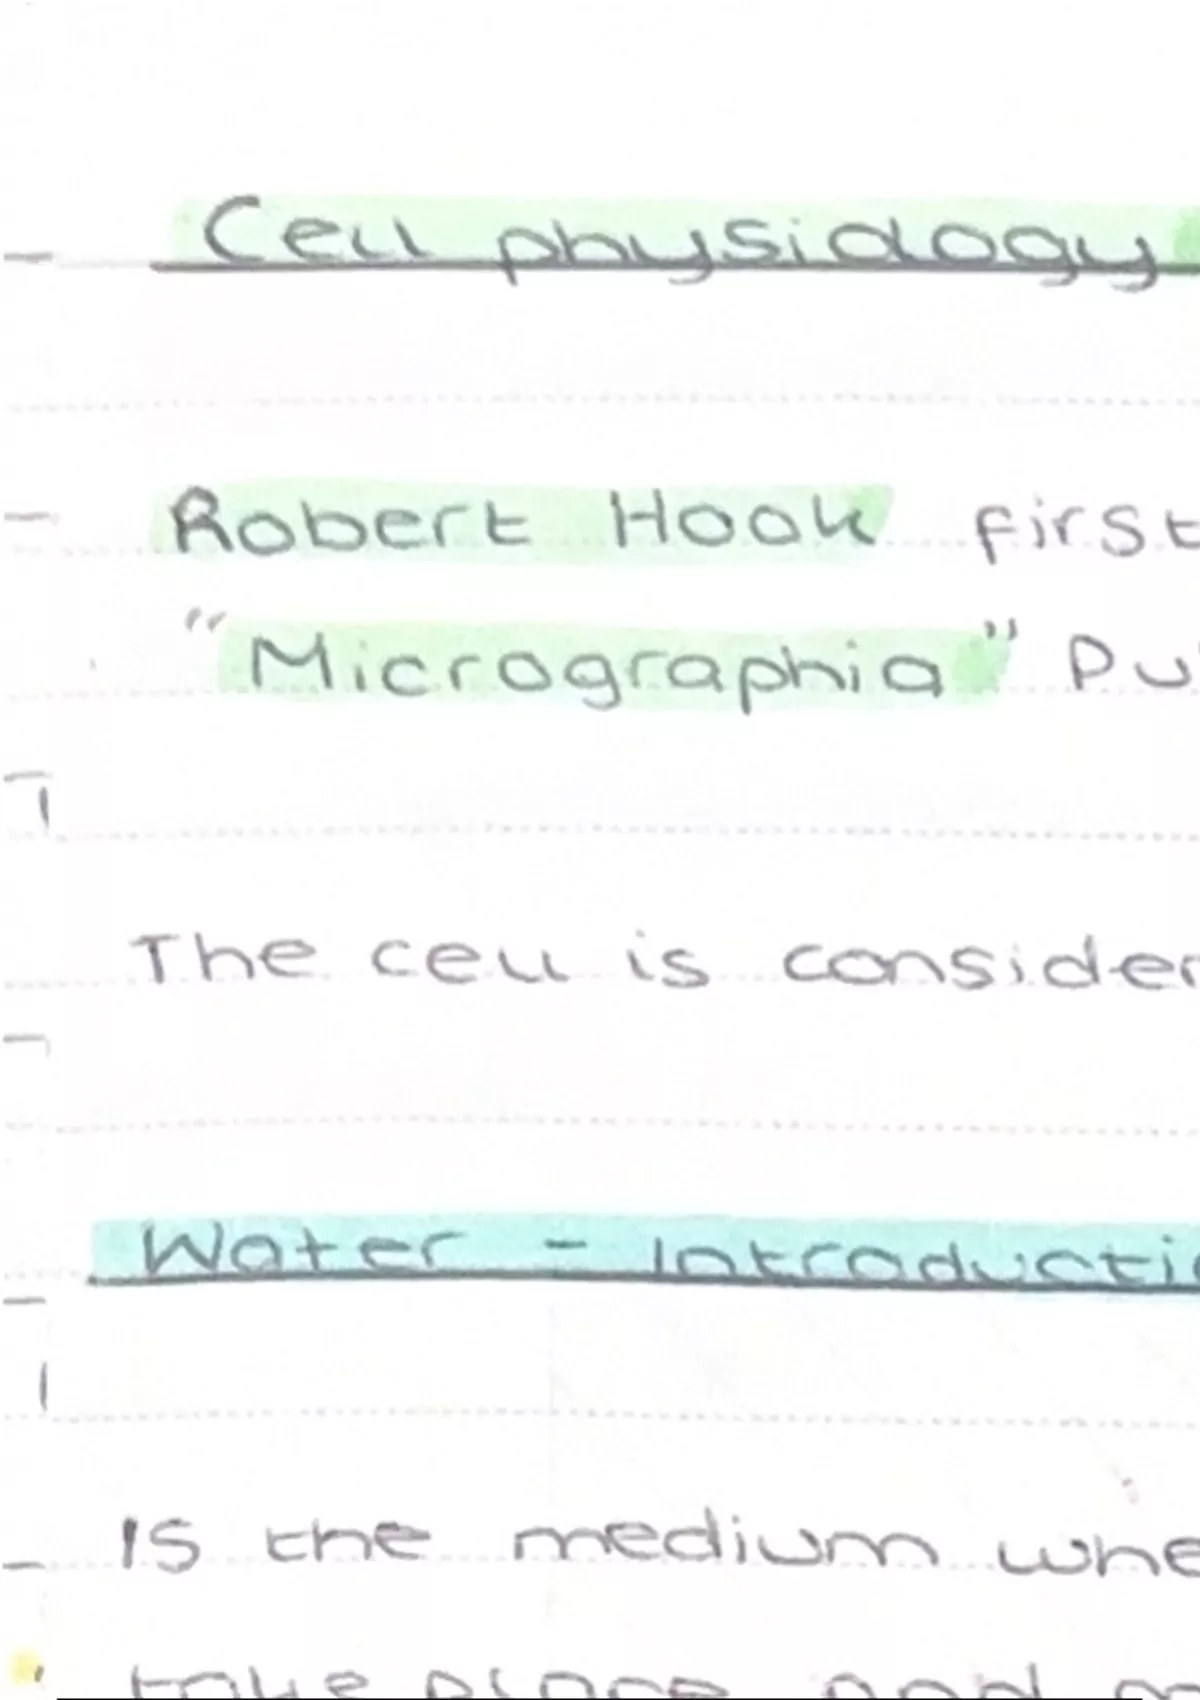 Cell physiology
Robert Hook first
"Micrographia" Pu
The cell is consider
Water - Introducti
Is the medium whe
take place and